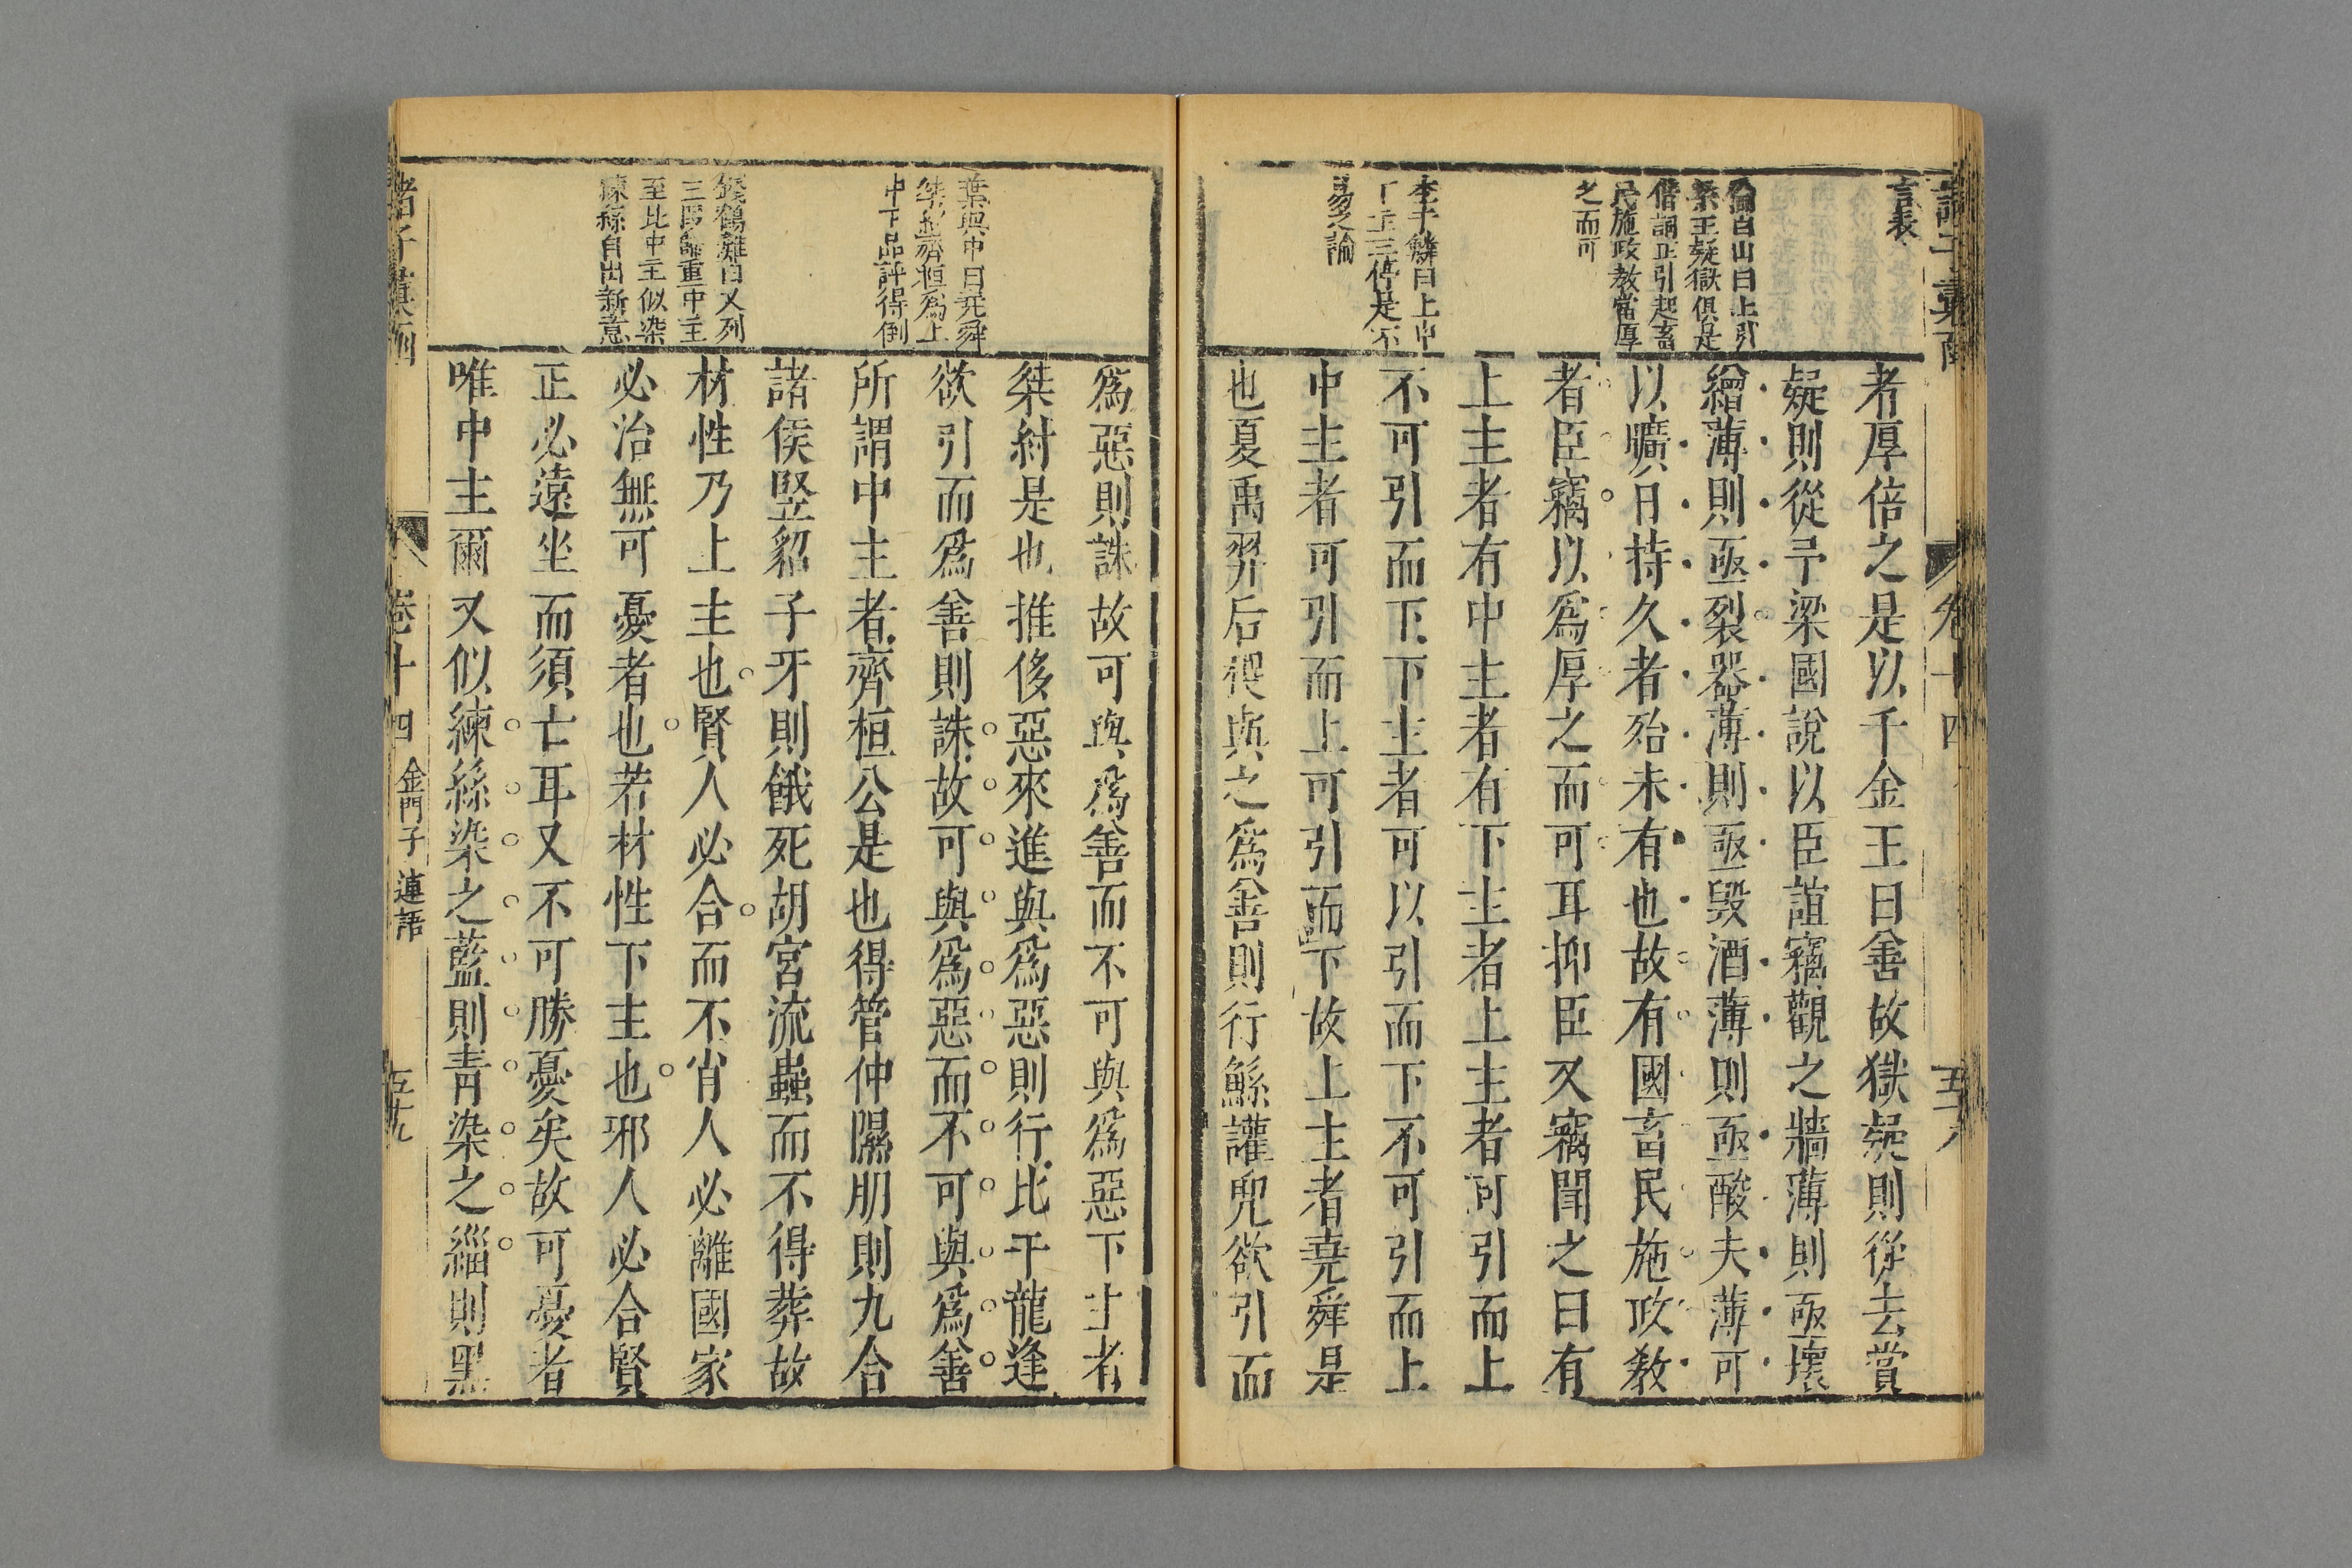 言表
崙白山曰上引
梁王疑獄俱是
借詞正引起畜
民施政教當厚
之而可
李于鱗曰上中
下主三傳是不
易之論
者厚倍之是以千金王曰善故獄疑則從去賞
疑則從予梁國說以臣誼竊觀之牆薄則亟壞
繒薄則亟裂器薄則亟毀酒薄則亟酸夫薄可
以曠日持久者殆未有也故有國畜民施政教
者臣竊以爲厚之而可耳抑臣又竊聞之曰有
上主者有中主者有下主者上主者可引而上
不可引而下下主者可以引而下不可引而上
中主者可引而上可引而下故上主者堯舜是
也夏禹羿后稷與之爲善則行鯀讙兜欲引而
卷十四
五十八
葉與中曰堯舜
桀紂齊桓爲上
中下品評得倒
錢鶴灘曰又列
三段歸重中主
至比中主似染
練絲自出新意
爲惡則誅故可與爲善而不可與爲惡下主者
桀紂是也推侈惡來進與爲惡則行比干龍逢
欲引而爲善則誅故可與爲惡而不可與爲善
所謂中主者齊桓公是也得管仲隰朋則九合
諸侯竪貂子牙則餓死胡宮流蟲而不得葬故
材性乃上主也賢人必合而不肖人必離國家
必治無可憂者也若材性下主也邪人必合賢
正必遠坐而須亡耳又不可勝憂矣故可憂者
唯中主爾又似練絲染之藍則青染之緇則黑
卷十四 金門子 連語
五十九